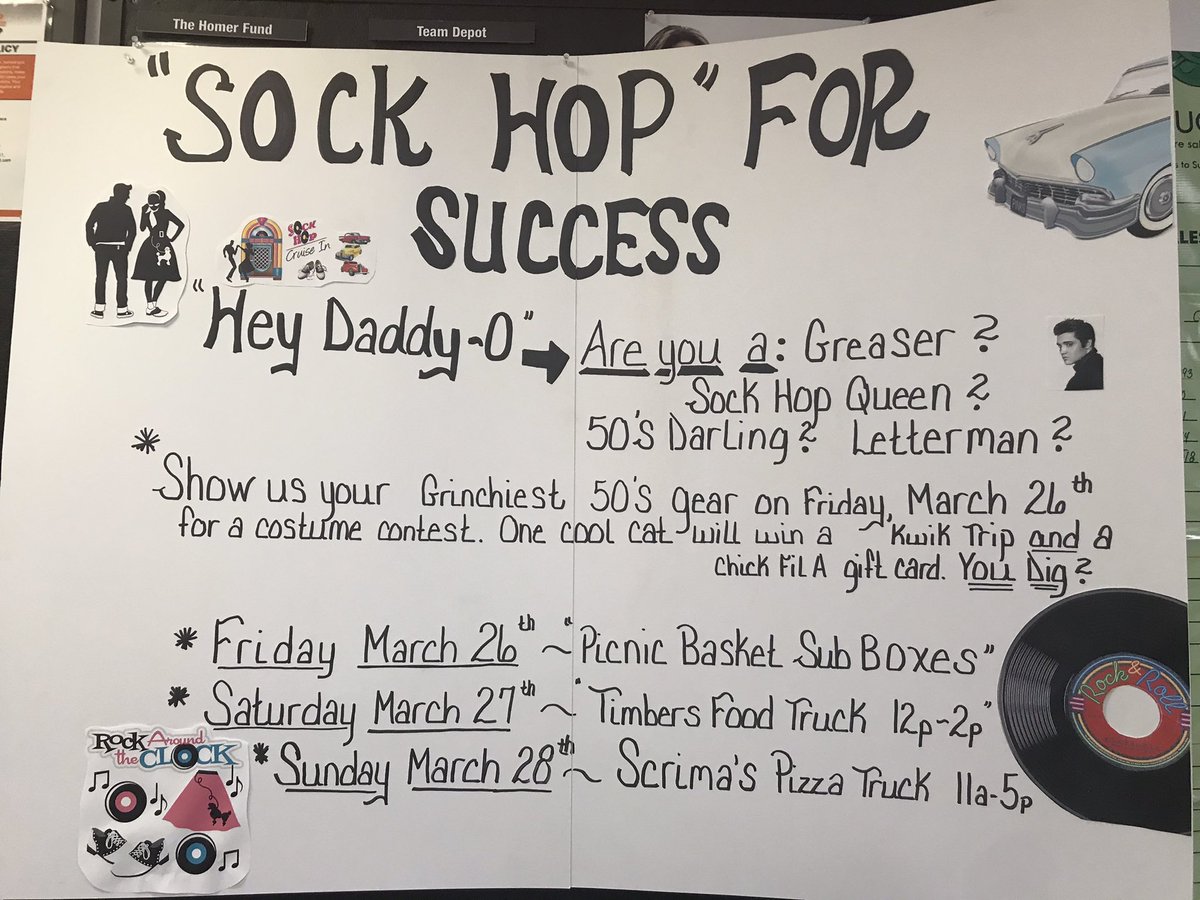 The Homer Fund
Team Depot
"SOCK HOP" FOR
SUCCESS
SOCK
HOP
Cruise In
"Hey Daddy-O" → Are you a: Greaser?
Sock Hop Queen?
50's Darling? Letterman?
* Show us your Grinchiest 50's gear on Friday, March 26th
for a costume contest. One cool cat will win a Kwik Trip and a
chick Fil A gift card. You Dig?
* Friday March 26th ~ "Picnic Basket Sub Boxes"
* Saturday March 27th ~ "Timbers Food Truck 12p-2p"
* Sunday March 28th ~ Scrima's Pizza Truck 11a-5p
Rock & Roll
Rock Around
the CLOCK